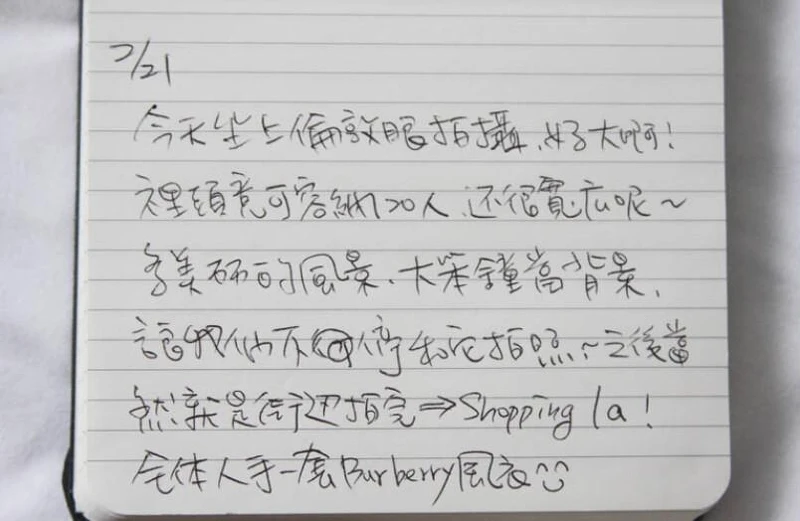 7/21
今天坐上倫敦眼拍攝、好大啊!
裡頭竟可容納20人、还很寬広呢~
多美丽的風景、大笨鐘當背景、
讓我們不停和它拍照~之後當
然就是街边拍完⇒Shopping la!
全体人手一套Burberry風衣